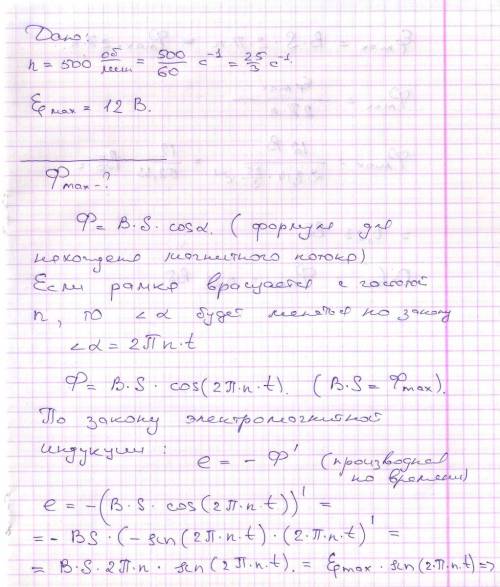 Дано:
n = 500 об/мин = 500/60 с⁻¹ = 25/3 с⁻¹.
Ɛmax = 12 В.
Фmax - ?
Ф = B·S·cosα. (формула для
нахождения магнитного потока)
Если рамка вращается с частотой
n, то ∠α будет меняться по закону
∠α = 2πn·t
Ф = B·S·cos(2π·n·t). (B·S = Фmax).
По закону электромагнитной
индукции: e = - Ф' (производная
по времени)
e = -(B·S·cos(2π·n·t))' =
= - BS·(-sin(2π·n·t)·(2·π·n·t)' =
= B·S·2π·n·sin(2π·n·t). = Ɛmax·sin(2·π·n·t) =>